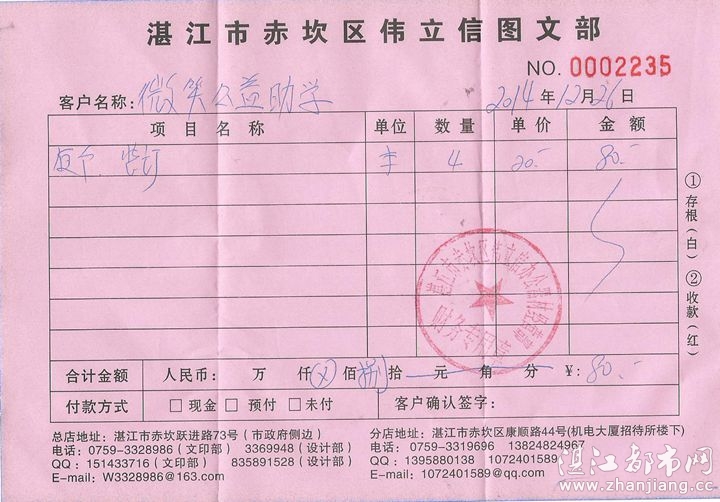 湛江市赤坎区伟立信图文部
NO. 0002235
客户名称: 微笑公益助学 2014年12月26日
项目名称 单位 数量 单价 金额
复印、装订 本 4 20.- 80.-
①存根(白) ②收款(红)
湛江市赤坎区伟立信办公器材经营部
财务专用章
合计金额 人民币: 万 仟 ⊗ 佰 捌 拾 元 角 分 ¥: 80.-
付款方式 □现金 □预付 □未付 客户确认签字:
总店地址: 湛江市赤坎跃进路73号(市政府侧边)
电话: 0759-3328986(文印部) 3369948(设计部)
QQ: 151433716(文印部) 835891528(设计部)
E-mail: W3328986@163.com
分店地址: 湛江市赤坎区康顺路44号(机电大厦招待所楼下)
电话: 0759-3319696 13824824967
QQ: 1395880138 1072401589
E-mail: 1072401589@qq.com
湛江都市网
www.zhanjiang.cc